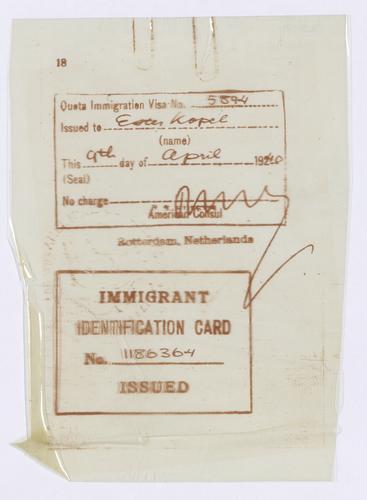 18
Quota Immigration Visa No. 5844
Issued to Ester Kopel
(name)
This 9th day of April 1940
(Seal)
No charge
American Consul
Rotterdam, Netherlands
IMMIGRANT
IDENTIFICATION CARD
No. 1186364
ISSUED